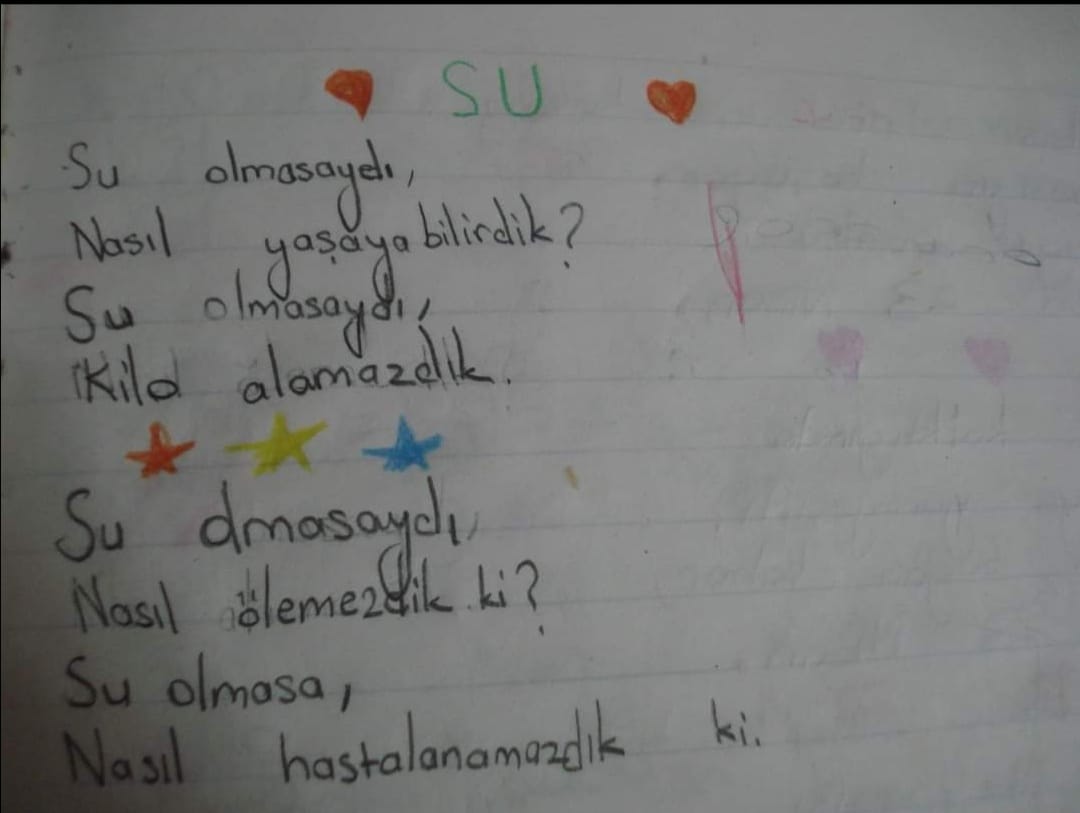 SU
Su olmasaydı,
Nasıl yaşayabilirdik?
Su olmasaydı,
Kilo alamazdık.
Su olmasaydı,
Nasıl ölemezdik ki?
Su olmasa,
Nasıl hastalanamazdık ki.